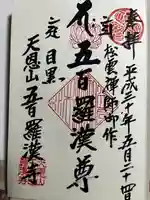 奉拝 平成三十年五月二十四日
松雲禅師御作
五百羅漢尊
目黒
天恩山 五百羅漢寺